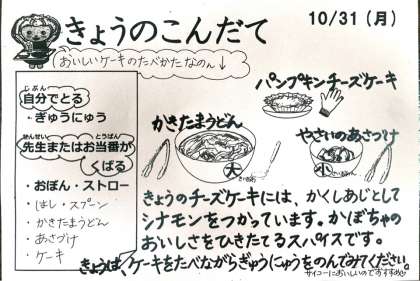 きょうのこんだて
10/31(月)
おいしいケーキのたべかたなのん↓
自分でとる
じぶん
・ぎゅうにゅう
先生またはお当番が
せんせい
とうばん
くばる
・おぼん・ストロー
・はし・スプーン
・かきたまうどん
・あさづけ
・ケーキ
パンプキンチーズケーキ
かきたまうどん
大
やさいのあさづけ
小
きょうのチーズケーキには、かくしあじとして
シナモンをつかっています。かぼちゃの
おいしさをひきたてるスパイスです。
きょうは、ケーキをたべながらぎゅうにゅうをのんでみてください。
サイコーにおいしいのでおすすめ